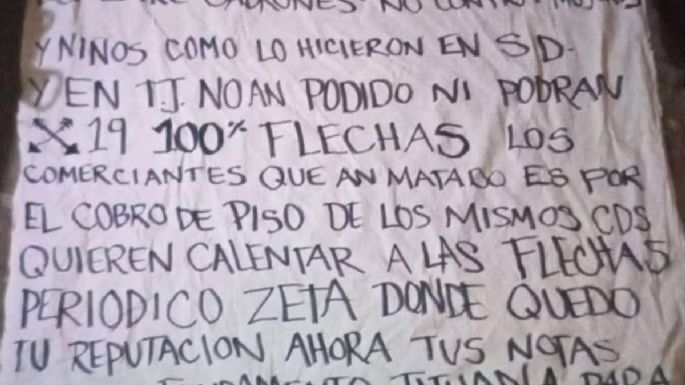 NO CONTRA
Y NIÑOS COMO LO HICIERON EN S.D.
Y EN T.J. NO AN PODIDO NI PODRAN
19 100% FLECHAS LOS
COMERCIANTES QUE AN MATADO ES POR
EL COBRO DE PISO DE LOS MISMOS CDS
QUIEREN CALENTAR A LAS FLECHAS
PERIODICO ZETA DONDE QUEDO
TU REPUTACION AHORA TUS NOTAS